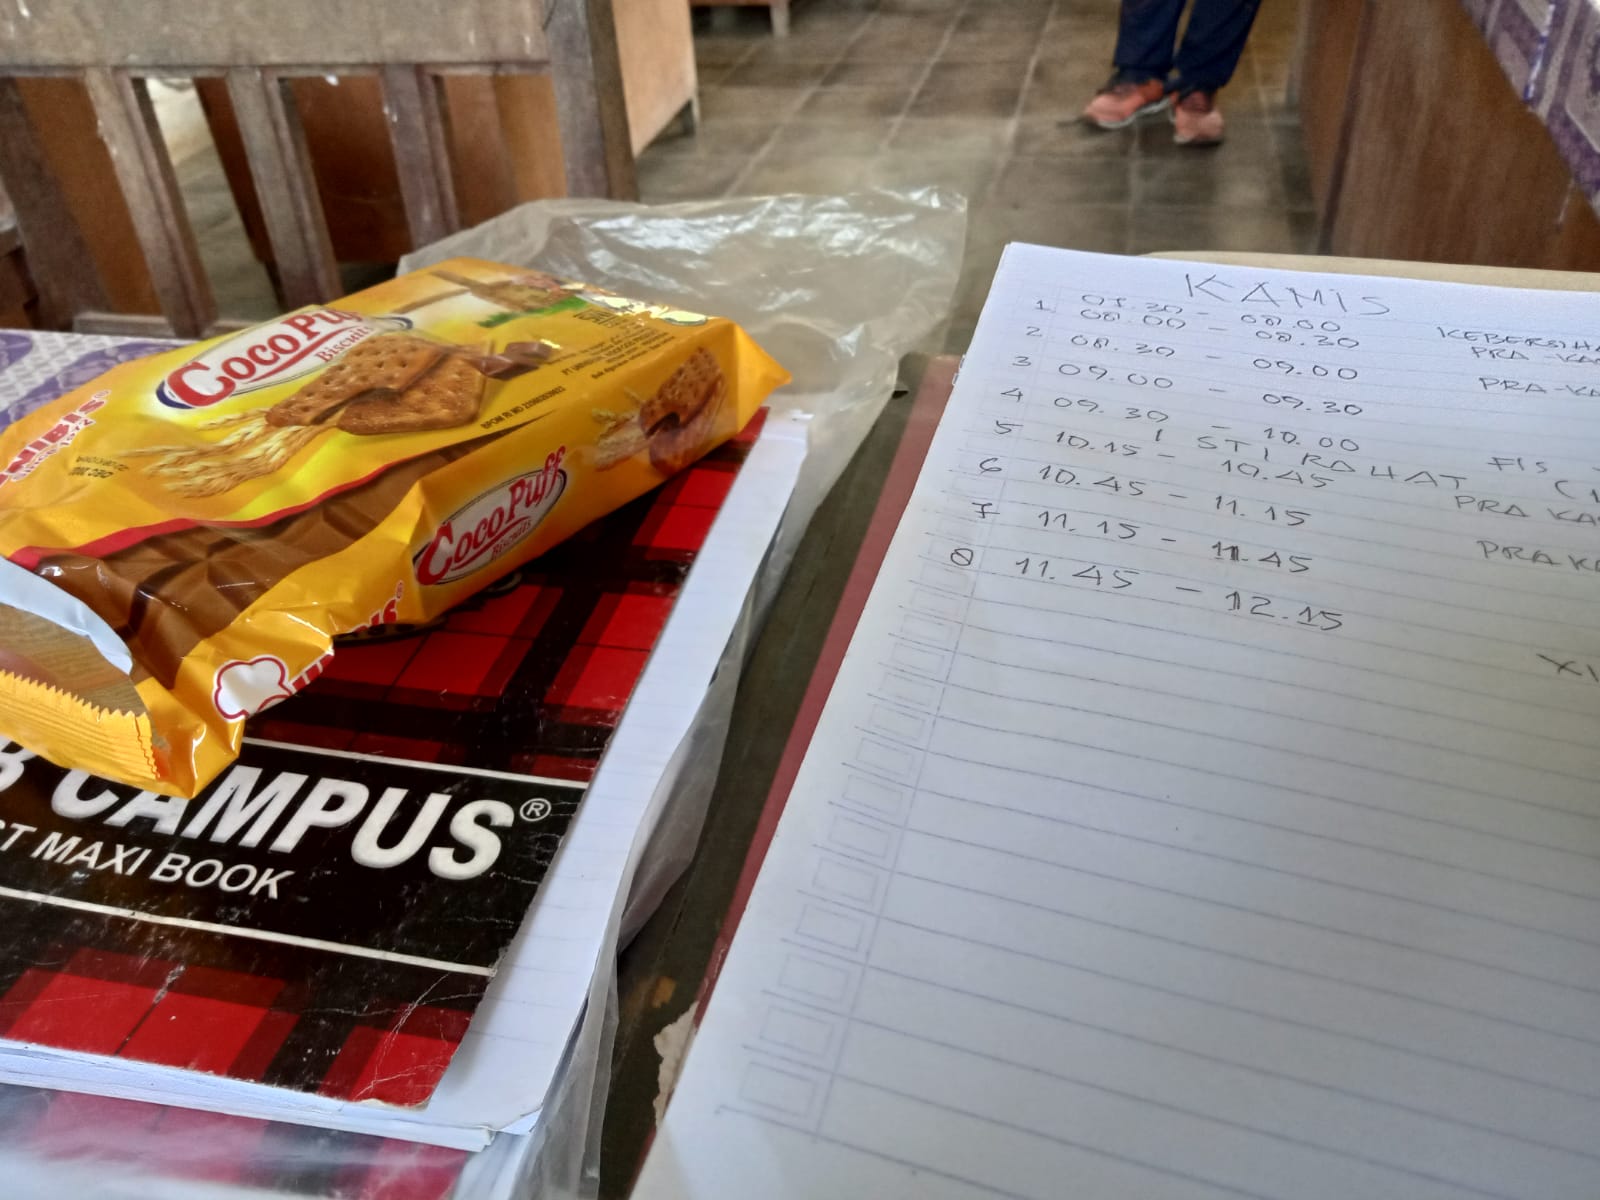 CocoPuff
Biscuits
UNIBIS®
SINCE 1972
BPOM RI MD
CocoPuff
BISCUITS
CAMPUS®
MAXI BOOK
KAMIS
07.30 - 08.00 KEBERSIHA
1. 08.00 - 08.30 PRA-KA
2 08.30 - 09.00 PRA-KA
3 09.00 - 09.30
4 09.30 - 10.00 FIS
ISTIRAHAT
5 10.15 - 10.45
6 10.45 - 11.15 PRA KA
7 11.15 - 11.45 PRA K
8 11.45 - 12.15
XI